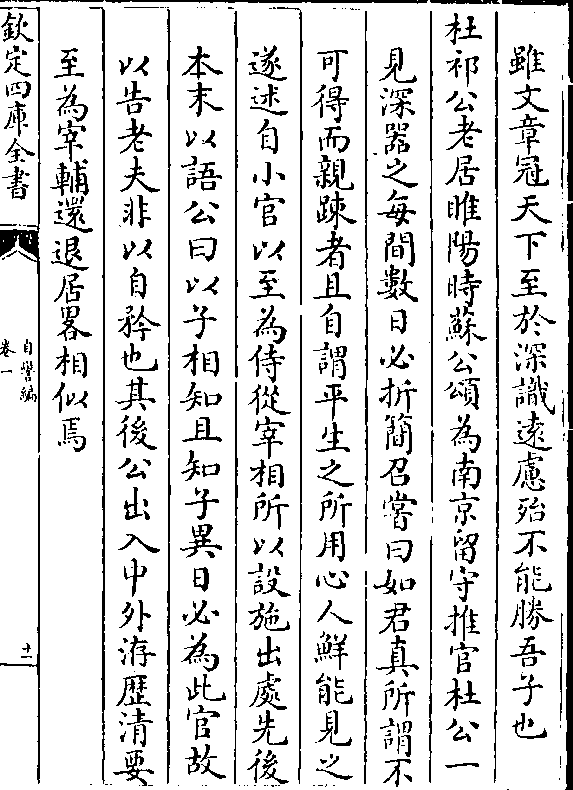 雖文章冠天下至於深識遠慮殆不能勝吾子也
杜祁公老居睢陽時蘇公頌為南京留守推官杜公一
見深器之每間數日必折簡召嘗曰如君真所謂不
可得而親踈者且自謂平生之所用心人鮮能見之
遂述自小官以至為侍從宰相所以設施出處先後
本末以語公曰以子相知且知子異日必為此官故
以告老夫非以自矜也其後公出入中外洊歴清要
至為宰輔還退居畧相似焉
欽定四庫全書
自警編
卷一
十一